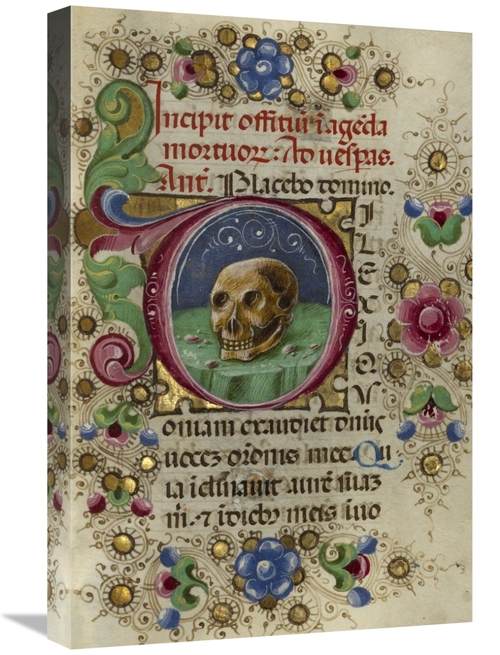 Incipit offitiuʒ ī agēda
mortuoꝝ : Ad uespas.
Ant̄. Placebo domino.
DILEXI QV
oniam exaudiet dn̄s
uocē orōnis mee Qu
ia īclinauit aurē suaʒ
m̄. ⁊ ī diebꝫ meis īuo